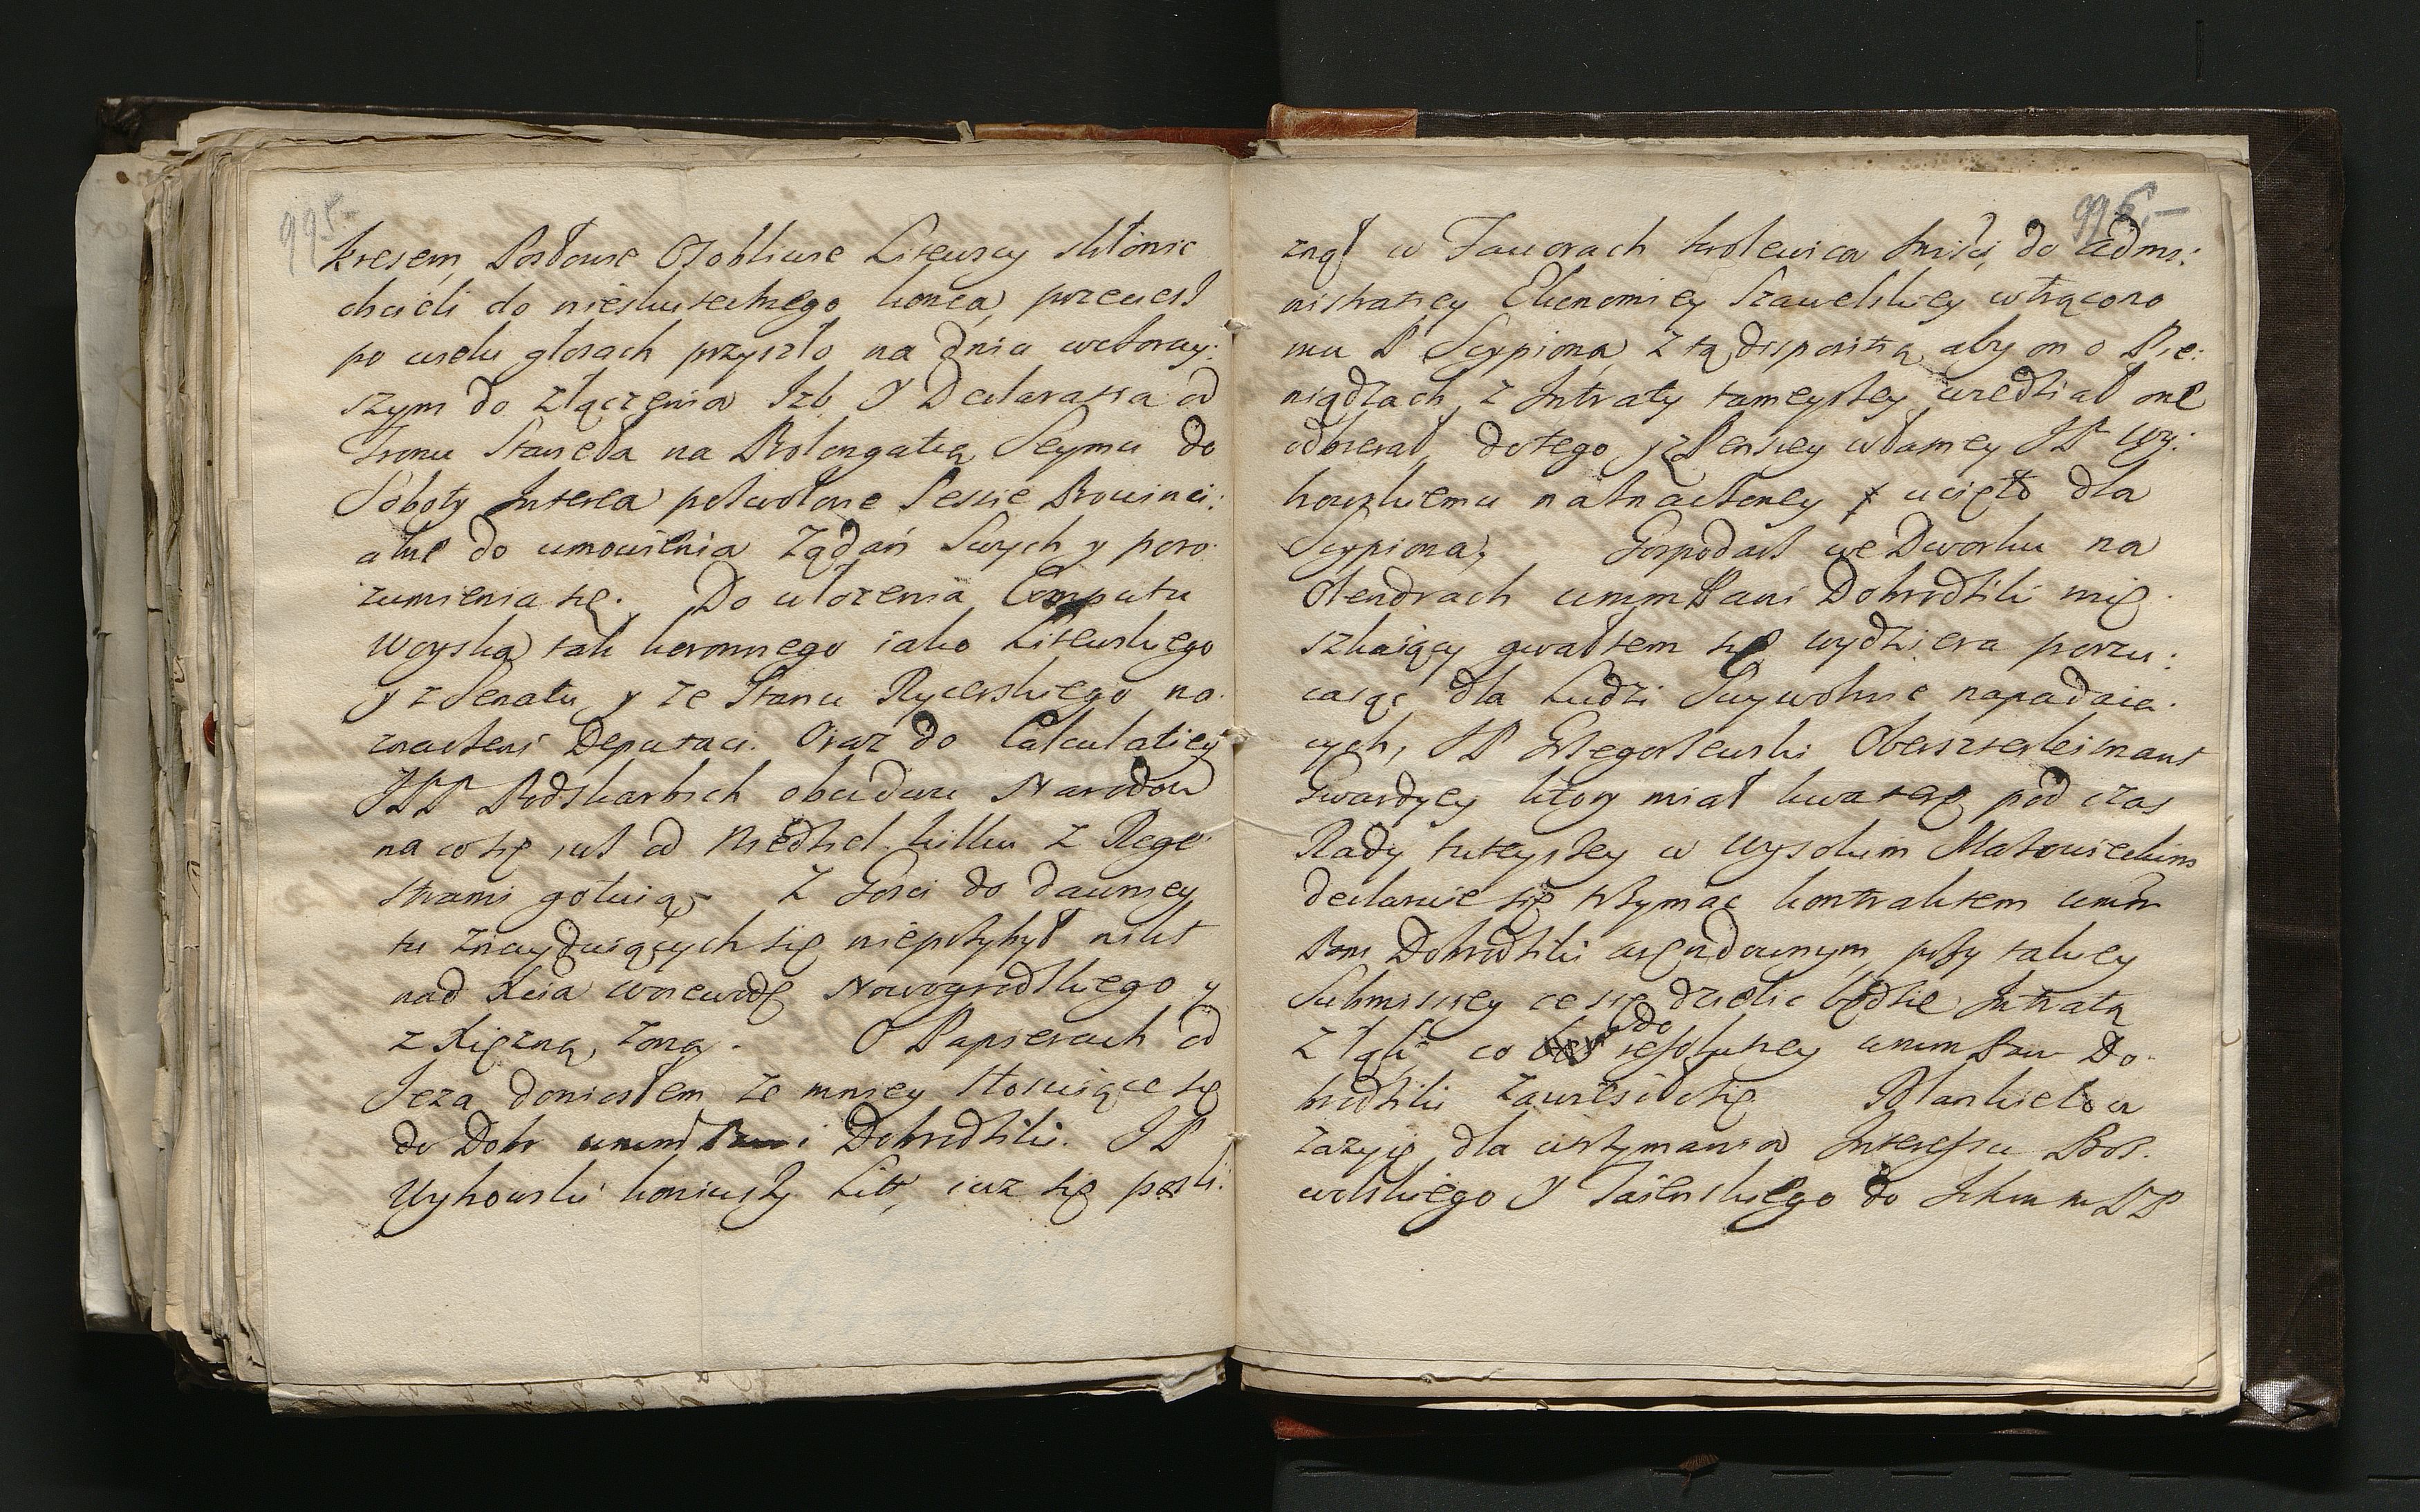 995.
kresem Posłowie Osobliwie Litewscy skłonic
chcieli do nieskutecznego konca, przeciesz
po wielu głosach przyszło na dniu wctoray:
szym do złączenia Izb, y Declaratia od
Tronu Staneła na Prolongatią Seymu do
Soboty Interea pozwolone Sessie Prowinci:
alne do umowienia Ządań Swych y poro:
zumienia się. Do ułozenia Computu
Woyska tak koronnego iako Litewskiego
y z Senatu, y ze Stanu Rycerskiego na:
znaczeni Deputaci. Oraz do Calculatiey
JPP Podskarbich obudwu Narodow
na co się iusz od Niedziel kilku z Rege:
strami gotuią. Z Gosci do dawniey
tu znayduiących się nieprzybył nikt
nad Xcia Woiewodę Nowogrodzkiego y
z Xięzną, Zoną. O Papierach od
Jeza doniosłem ze mniey stosuiące się
do Dobr Dobrodziki. JP
Wyhowski koniuszy Litt, iuz się posli:
996.
znął w Faworach krolewica Jmści, do admi:
nistratiey Ekonomiey Szawelskiey wtrącono
mu P Scypiona, z tą dispositią, aby on o Pie:
niądzach z Intraty tameyszey wiedział one
odbierał, do tego y z Pensiey własney JP Wy:
howskiemu naznaczoney ucięto dla
Scypiona, Gospodarz we Dworku na
Olendrach Dobrodziki mię:
szkaiący gwałtem się wydziera porzu:
caiąc dla Ludzi Swywolnie napadaią:
cych, JP Grzegorzewski Oberszterleitnant
Gwardyey ktory miał kwaterę pod czas
Rady tuteyszey w Wysokim Mazowieckim
declaruie się trzymac kontraktem
Dobrodziki arędownym, przy takiey
Submissiey ze się dzielic będzie Intratą
z Łąk co do resolutiey Do:
brodziki zawiesiło się Blankietow
zazyię dla utrzymania Interessu Bos:
wolskiego y Jasienskiego do PP